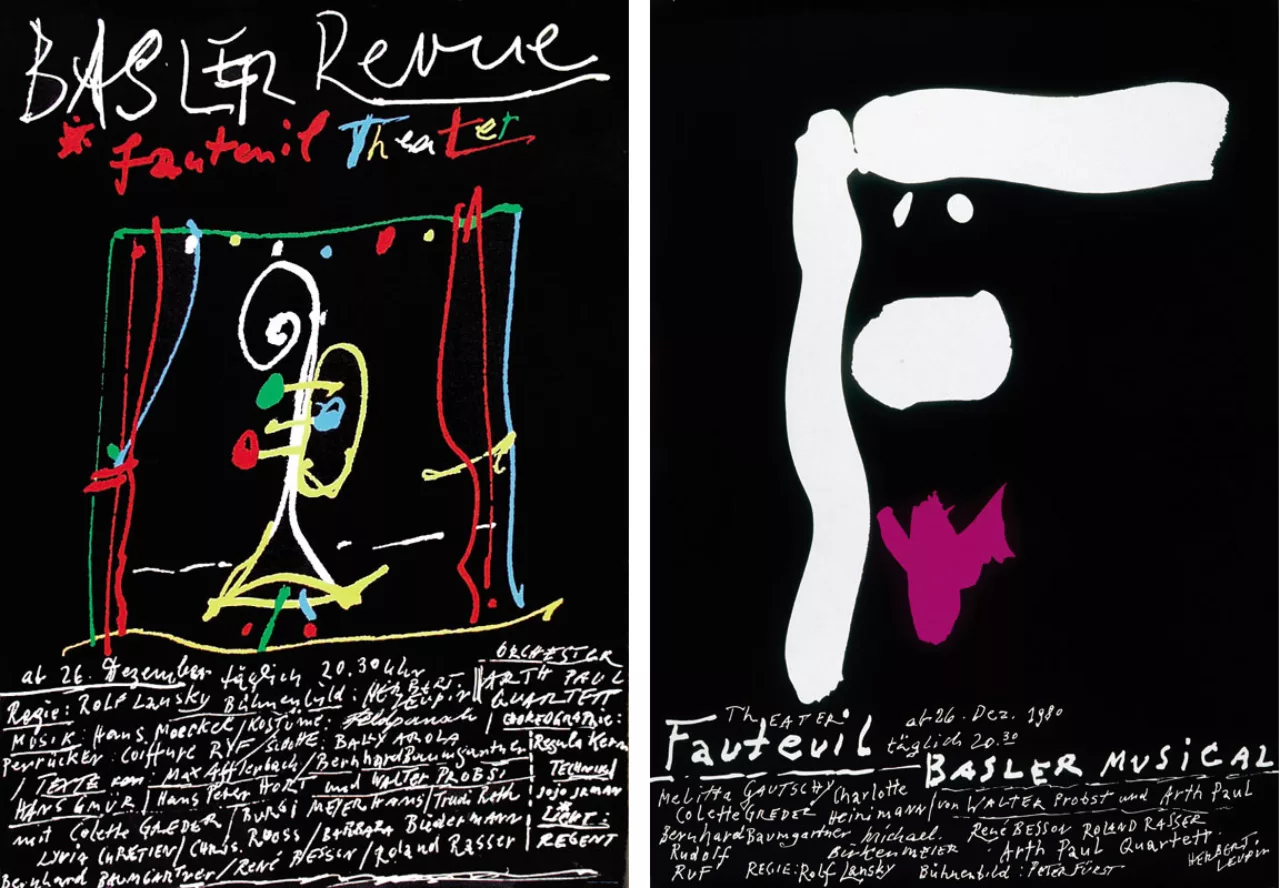 BASLER Revue
* fauteuil Theater
ab 26. Dezember täglich 20.30 Uhr
Regie: Rolf Lansky Bühnenbild: HERBERT LEUPIN
MUSIK: Hans Moeckel/KOSTÜME:
Perrücken: Coiffure RUF/SCHUHE: BALLY AROLA
/TEXTE von: MAX Afflerbach/BernhardBaumgartner
HANS GMÜR/Hans Peter HORT und WALTER PROBST
mit Colette GREDER/BURGI MEYERHANS/Trudi Roth
LYRIA CHRETIEN/CHRIS. ROOSS/BARBARA Büdermann
Bernhard BAUMGARTNER/RENÉ BESSON/Roland Rasser
ORCHESTER
ARTH PAUL
QUARTETT
CHOREOGRAPHIE:
Regula Kern
TECHNIK/
JOJO
*
LICHT:
REGENT
THEATER
Fauteuil
ab 26. Dez. 1980
täglich 20.30
BASLER MUSICAL
Melitta GAUTSCHY/Charlotte
Colette GREDER Heinimann/von WALTER Probst und Arth Paul
Bernhard Baumgartner Michael. René BESSON ROLAND RASSER
Rudolf Birkenmeier Arth Paul Quartett.
RUF REGIE: Rolf Lansky Bühnenbild: PETER FÜRST
HERBERT
LEUPIN